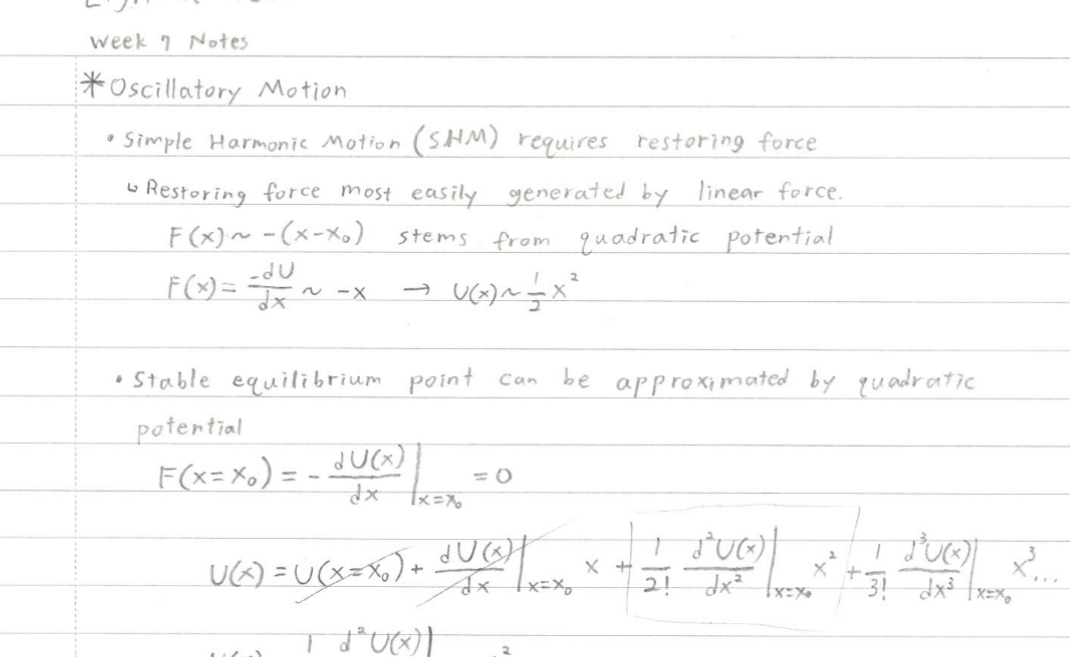 Week 7 Notes
* Oscillatory Motion
• Simple Harmonic Motion (SHM) requires restoring force
↳ Restoring force most easily generated by linear force.
F(x) ~ -(x-x₀) stems from quadratic potential
F(x) = -dU/dx ~ -x → U(x) ~ 1/2 x²
• Stable equilibrium point can be approximated by quadratic
potential
F(x=x₀) = - dU(x)/dx |x=x₀ = 0
U(x) = U(x=x₀) + dU(x)/dx |x=x₀ x + 1/2! d²U(x)/dx² |x=x₀ x² + 1/3! d³U(x)/dx³ |x=x₀ x³...
1 d²U(x)| ²